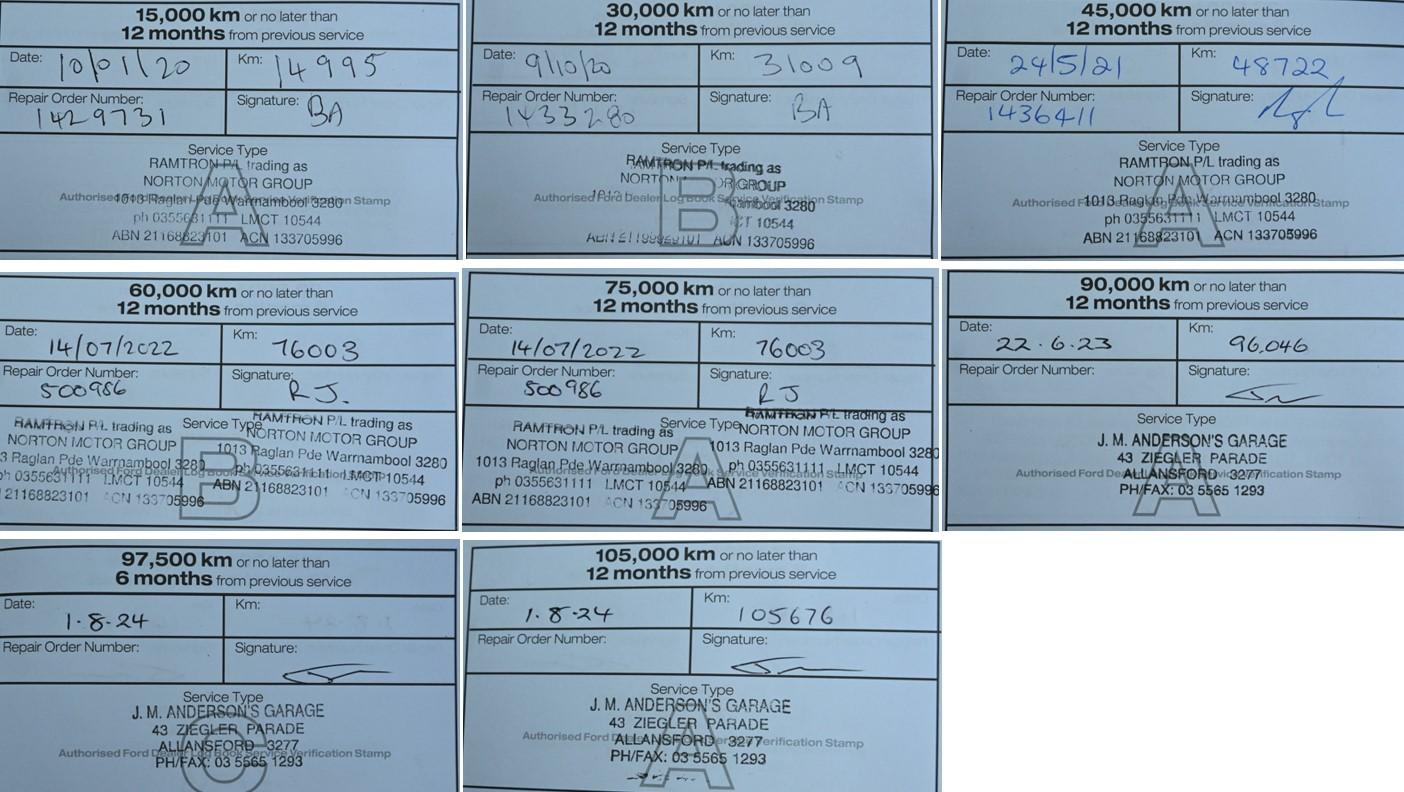 15,000 km or no later than
12 months from previous service
Date: 10/01/20 Km: 14995
Repair Order Number: 1429731 Signature: BA
Service Type
RAMTRON P/L trading as
NORTON MOTOR GROUP
Authorised Ford Dealer Log Book Service Verification Stamp
1013 Raglan Pde Warrnambool 3280
ph 0355631111 LMCT 10544
ABN 21168823101 ACN 133705996
A
30,000 km or no later than
12 months from previous service
Date: 9/10/20 Km: 31009
Repair Order Number: 1433280 Signature: BA
Service Type
RAMTRON P/L trading as
NORTON MOTOR GROUP
Authorised Ford Dealer Log Book Service Verification Stamp
1013 Warrnambool 3280
LMCT 10544
ACN 133705996
B
45,000 km or no later than
12 months from previous service
Date: 24/5/21 Km: 48722
Repair Order Number: 1436411 Signature:
Service Type
RAMTRON P/L trading as
NORTON MOTOR GROUP
1013 Raglan Pde Warrnambool 3280
Authorised Ford Dealer Log Book Service Verification Stamp
ph 0355631111 LMCT 10544
ABN 21168823101 ACN 133705996
A
60,000 km or no later than
12 months from previous service
Date: 14/07/2022 Km: 76003
Repair Order Number: 500986 Signature: RJ.
Service Type
RAMTRON P/L trading as RAMTRON P/L trading as
NORTON MOTOR GROUP NORTON MOTOR GROUP
3 Raglan Pde Warrnambool 3280 1013 Raglan Pde Warrnambool 3280
Authorised Ford Dealer Log Book Service Verification Stamp
ph 0355631111 LMCT 10544 ph 0355631111 LMCT 10544
21168823101 ACN 133705996 ABN 21168823101 ACN 133705996
B
75,000 km or no later than
12 months from previous service
Date: 14/07/2022 Km: 76003
Repair Order Number: 500986 Signature: RJ
Service Type
RAMTRON P/L trading as RAMTRON P/L trading as
NORTON MOTOR GROUP NORTON MOTOR GROUP
1013 Raglan Pde Warrnambool 3280 1013 Raglan Pde Warrnambool 3280
Authorised Ford Dealer Log Book Service Verification Stamp
ph 0355631111 LMCT 10544 ph 0355631111 LMCT 10544
ABN 21168823101 ACN 133705996 ABN 21168823101 ACN 133705996
A
90,000 km or no later than
12 months from previous service
Date: 22.6.23 Km: 96,046
Repair Order Number: Signature:
Service Type
J. M. ANDERSON'S GARAGE
43 ZIEGLER PARADE
Authorised Ford Dealer Log Book Service Verification Stamp
ALLANSFORD 3277
PH/FAX: 03 5565 1293
A
97,500 km or no later than
6 months from previous service
Date: 1.8.24 Km:
Repair Order Number: Signature:
Service Type
J. M. ANDERSON'S GARAGE
43 ZIEGLER PARADE
ALLANSFORD 3277
Authorised Ford Dealer Log Book Service Verification Stamp
PH/FAX: 03 5565 1293
C
105,000 km or no later than
12 months from previous service
Date: 1.8.24 Km: 105676
Repair Order Number: Signature:
Service Type
J. M. ANDERSON'S GARAGE
43 ZIEGLER PARADE
Authorised Ford Dealer Log Book Service Verification Stamp
ALLANSFORD 3277
PH/FAX: 03 5565 1293
A